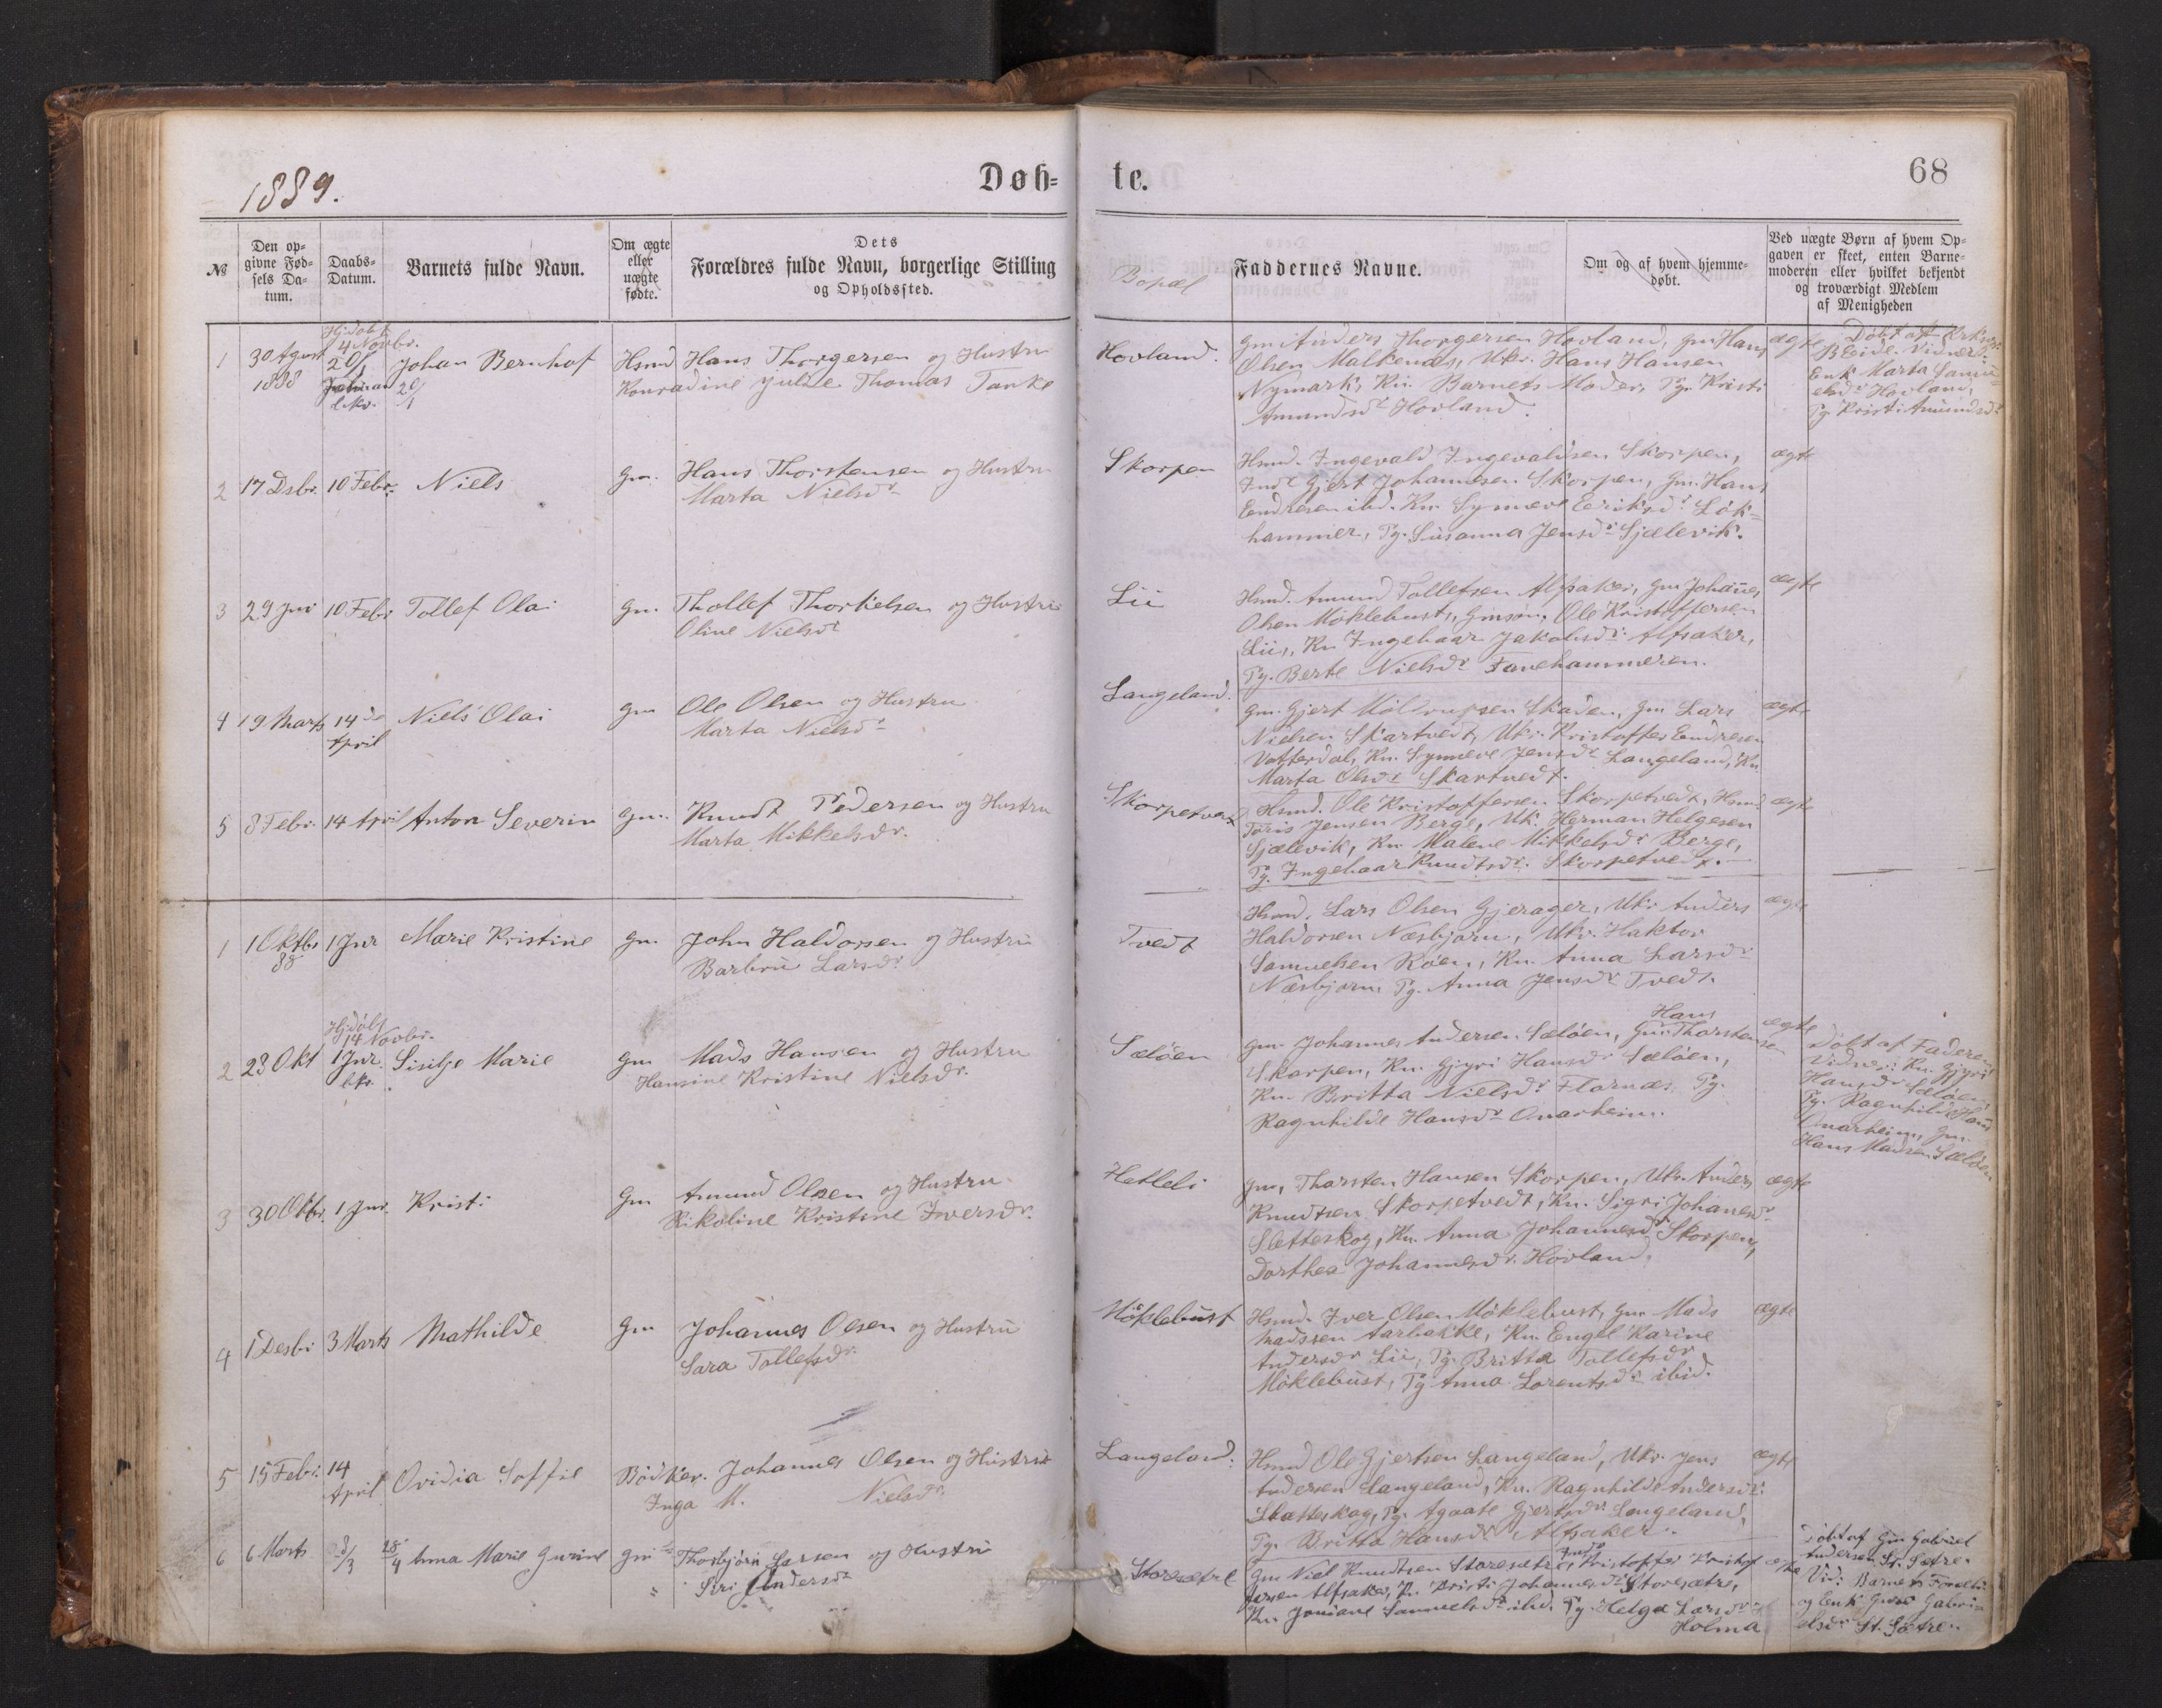 1889.
Døb=
te.
68
№
Den op=
givne Fød=
sels Da=
tum.
Daabs=
Datum.
Barnets fulde Navn.
Om ægte
eller
uægte
fødte.
Dets
Forældres fulde Navn, borgerlige Stilling
og Opholdssted.
Bopæl
Faddernes Navne.
Om og af hvem hjemme=
døbt.
Ved uægte Børn af hvem Op=
gaven er skeet, enten Barne=
moderen eller hvilket bekjendt
og troværdigt Medlem
af Menigheden
1
30 Agust
1888
Hjdøbt
4 Novbr.
20/1
Johan Bernhof
Hsmd Hans Thorgersen og Hustru
Konradine Julie Thomas Tanke
Hovland.
Gm Anders Thorgersen Hovland, Gm Hans
Olsen Malkenæs, Uk. Hans Hansen
Nymark, Kn. Barnets Moder, Pg. Kristi
Amundsdr Hovland.
ægte
Døbt af Krks.
Vidner:
Enk. Marta Samu=
elsdr Hovland,
Pg. Kristi Amundsdr
2
17 Dsbr.
10 Febr.
Niels
Gm.
Hans Thorstensen og Hustru
Marta Nielsdr
Skorpen
Hsmd. Ingevald Ingevaldsen Skorpen,
Inds Gjert Johannesen Skorpen, Gm. Hans
Endresen ibd. Kn. Synneve Eriksdr Løk=
hammer, Pg. Susanna Jensdr Sjælevik.
ægte
3
29 Jnr
10 Febr
Tollef Olai
Gm.
Thollef Thorkelsen og Hustru
Oline Nielsdr
Lii
Hsmd. Amund Tollefsen Alfsaker, Gm Johannes
Olsen Møklebust, Gmsøn. Ole Kristoffersen
Lii, Kn Ingebaar Jakobsdr. Alfsaker,
Pg. Berte Nielsdr Favehammeren.
ægte
4
19 Marts
14de
April
Niels Olai
Gm
Ole Olsen og Hustru
Marta Nielsdr
Langeland.
Gm. Gjert Møldrupsen Skaden, Gm Lars
Nielsen Skartvedt, Uk. Kristoffer Endresen
Vatterdal, Kn. Synneve Jensdr Langeland, Kn
Marta Olsdr Skartvedt.
ægte
5
8 Febr.
14 April
Anton Severin
Gm.
Knudt Pedersen og Hustru
Marta Mikkelsdr.
Skorpetvedt
Hsmd. Ole Kristoffersen Skorpetvedt, Hsmd
Toris Jensen Berge, Uk. Herman Helgesen
Sjælevik, Kn Malene Mikkelsdr Berge,
Pg. Ingebaar Knudtsdr. Skorpetvedt.
ægte
1
1 Oktbr
88
1 Jnr
Marie Kristine
Gm.
John Haldorsen og Hustru
Barbru Larsdr
Tvedt
Hsmd. Lars Olsen Gjerager, Uk. Anders
Haldorsen Næsbjørn, Uk. Haktor
Samuelsen Røen, Kn. Anna Larsdr
Næsbjørn. Pg. Anna Jensdr Tvedt.
ægte
2
23 Okt
Hjdøbt
14 Novbr.
1 Jnr.
bkr.
Sisilje Marie
Gm
Mads Hansen og Hustru
Hansine Kristine Nielsdr.
Sæløen
Gm. Johannes Andersen Sæløen, Gm. Hans Thorsten
sen
Skorpen, Kn. Gjyri Hansdr Sæløen,
Kn. Britta Nielsdr Flornæs. Pg.
Ragnhilde Hansdr Onarheim.
ægte
Døbt af Faderen
Vidner: Kn. Gjyri
Hansdr Sæløen,
Pg. Ragnhilde Hans
Onarheim, Gm.
Hans Madsen Sæløen
3
30 Oktbr.
1 Jnr.
Kristi
Gm
Amund Olsen og Hustru
Rikoline Kristine Iversdr.
Hetleli
Gm, Thorsten Hansen Skorpen, Uk. Anders
Knudtsen Skorpetvedt, Kn. Sigri Johanesdr
Sletteskog, Kn. Anna Johannesdr Skorpen,
Dorthea Johannesdr. Hovland.
ægte
4
1 Desbr
3 Marts
Mathilde
Gm
Johannes Olsen og Hustru
Sara Tollefsdr.
Møklebust
Hsmd. Iver Olsen Møklebust, Gm Mads
Madssen Aarbakke, Kn. Engel Karine
Andersdr Lii, Pg. Britta Tollefsdr
Møklebust, Pg Anna Lorentsdr ibid.
ægte
5
15 Febr.
14
April
Ovidia Soffie
Bødker. Johannes Olsen og Hustru
Inga M. Nielsdr.
Langeland.
Hsmd Ole Gjertsen Langeland, Uk. Jens
Andersen Langeland, Kn. Ragnhilde Andersdr.
Skatteskog, Pg. Agaate Gjertsdr Langeland,
Pg. Britta Hansdr Alfsaker.
ægte
6
6 Marts
8/3
28/4
Anna Marie Gurine
Gm
Thorbjørn Larsen og Hustru
Siri Andersdr
Storesætre
Gm Niel Knudtsen Storesætre, Inds Kristoffer Kristof
fersen Alfsaker, Kn Kristi Johannesdr Storesætre,
Kn. Joniane Samuelsdr ibd. Pg. Helga Larsdr
Holma
ægte
Døbt af Gm Gabriel
Andersen St. Sætre.
Vid: Barnets Forældr
og Enk. Guro Gabri
elsdr St. Sætre.